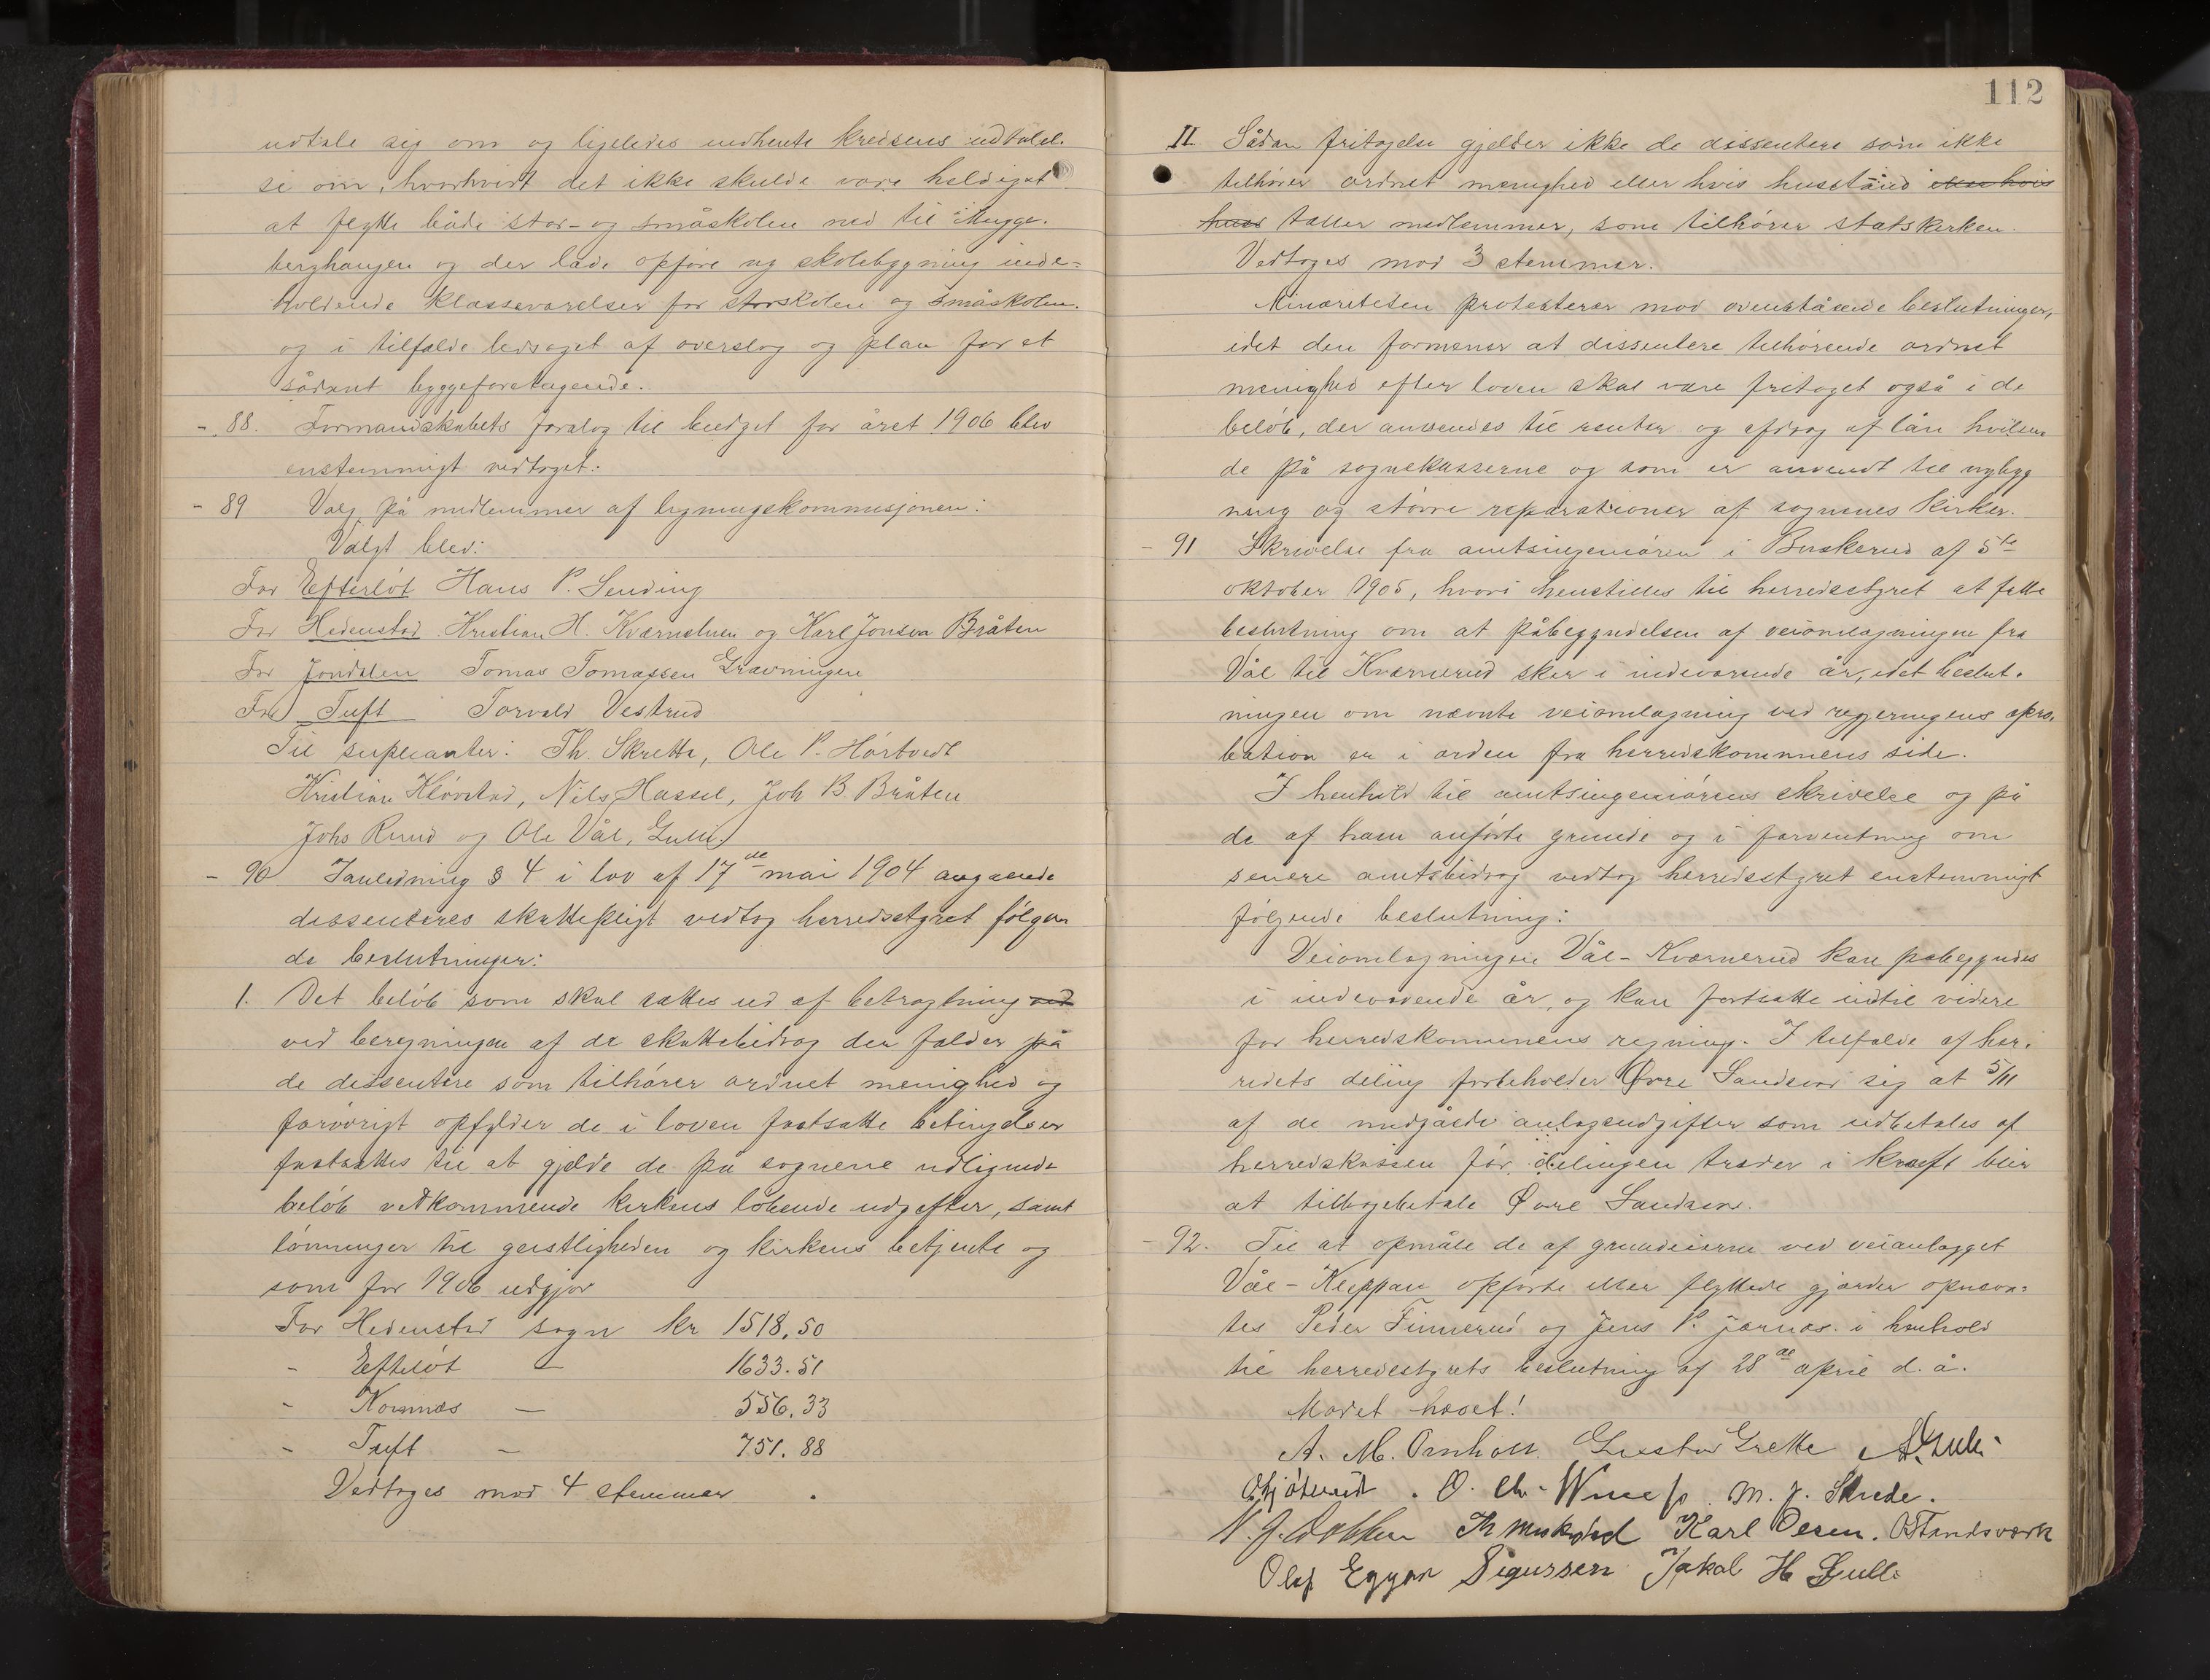 udtale sig om og ligeledes indhente kredsens udtalel-
se om, hvorhvidt det ikke skulde være heldigst
at flytte både stor- og småskolen ned til Mugge-
berghaugen og der lade opføre ny skolebygning inde-
holdende klasseværelser for storskolen og småskolen.
og i tilfælde ledsaget af overslag og plan for et
sådant byggeforetagende.
- 88. Formandskabets forslag til budget for året 1906 blev
enstemmigt vedtaget.
- 89 Valg på medlemmer af ligningskommisjonen:
Valgt blev:
For Efteløt Hans P. Sending
For Hedenstad Kristian H. Kværnstuen og Karl Jonsen Bråten
For Jondalen Tomas Tomassen Gravningen
For Tuft Torvald Vestrud
Til suppleanter: Th. Skretta, Ole P. Hørtvedt
Kristian Kløvstad, Nils Hassel, Joh B. Bråten
Johs Ruud og Ole Vål, Gulli
- 90 I anledning § 4 i lov af 17de mai 1904 angaende
dissenteres skattepligt vedtog herredsstyret følgen
de beslutninger:
1. Det beløb som skal sættes ud af betragtning ved
ved beregningen af de skattebidrag der falder på
de dissentere som tilhører ordnet menighed og
forøvrigt opfylder de i loven fastsatte betingelser
fastsættes til at gjelde de på sognene udlignede
beløb vedkommende kirkens løbende udgifter, samt
lønninger til geistligheden og kirkens betjente og
som for 1906 udgjør
For Hedenstad sogn kr 1518,50
- Efteløt — 1633.51
- Komnæs — 556,33
- Tuft — 751.88
Vedtoges mod 4 stemmer.
112
II. Sådan fritagelse gjelder ikke de dissentere som ikke
tilhører ordnet menighed eller hvis husstand eller hvis
huus tæller medlemmer, som tilhører statskirken.
Vedtoges mod 3 stemmer.
Minoriteten protesterer mod ovenstående beslutninger,
idet den formener at dissentere tilhørende ordnet
menighed efter loven skal være fritaget også i de
beløb, der anvendes til renter og afdrag af lån hvilen
de på sognekasserne og som er anvendt til nybyg
ning og større reparationer af sognenes kirker.
- 91 Skrivelse fra amtsingeniøren i Buskerud af 5te
oktober 1905, hvori henstilles til herredsstyret at fatte
beslutning om at påbegyndelsen af veiomlægningen fra
Vål til Kværnerud sker i indeværende år, idet beslut-
ningen om nævnte veiomlægning ved regjeringens apro-
bation er i orden fra herredskommunens side.
I henhold til amtsingeniørens skrivelse og på
de af ham anførte grunde og i forventning om
senere amtsbidrag vedtog herredsstyret enstemmigt
følgende beslutning:
Veiomlægningen Vål - Kværnerud kan pabegyndes
i indeværende år, og kan fortsætte indtil videre
for herredskommunens regning. I tilfælde af her-
redets deling forbeholder Øvre Sandsvær sig at 5/11
af de medgåede anlægsudgifter som udbetales af
herredskassen før delingen træder i kraft blir
at tilbagebetale Øvre Sandsvær.
- 92. Til at opmåle de af grundeierne ved veianlægget
Vål - Kleppan opførte eller flyttede gjærder opnævn-
tes Peder Finnerud og Jens P. Jærnås i henhold
til herredsstyrets beslutning af 28de april d. å.
Mødet hævet!
A. M. Ornholt. Gustav Grette A. Gulli
O. Ch. M. J. Skrede.
Karl Olsen. O Tandsværk
Olaf Eggar Sigurssen Jakob H Gulli